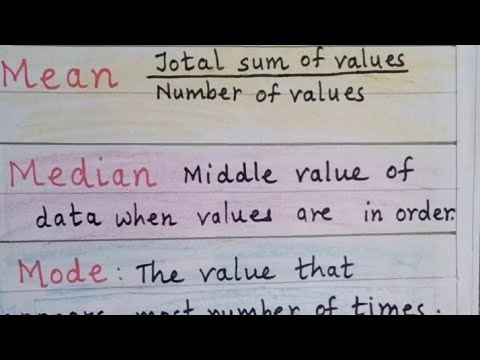 Mean Total sum of values
Number of values
Median Middle value of
data when values are in order.
Mode : The value that
appears most number of times.